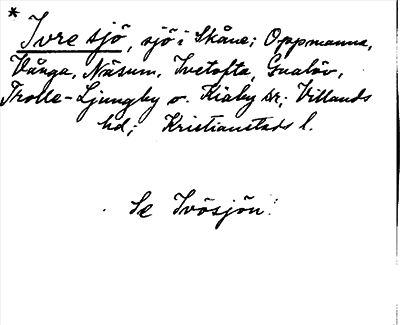 *
Ivre sjö, sjö i Skåne; Oppmanna,
Vånga, Näsum, Ivetofta, Gualöv,
Trolle-Ljungby o. Kiaby sn; Villands
hd; Kristianstads l.
Se Ivösjön.